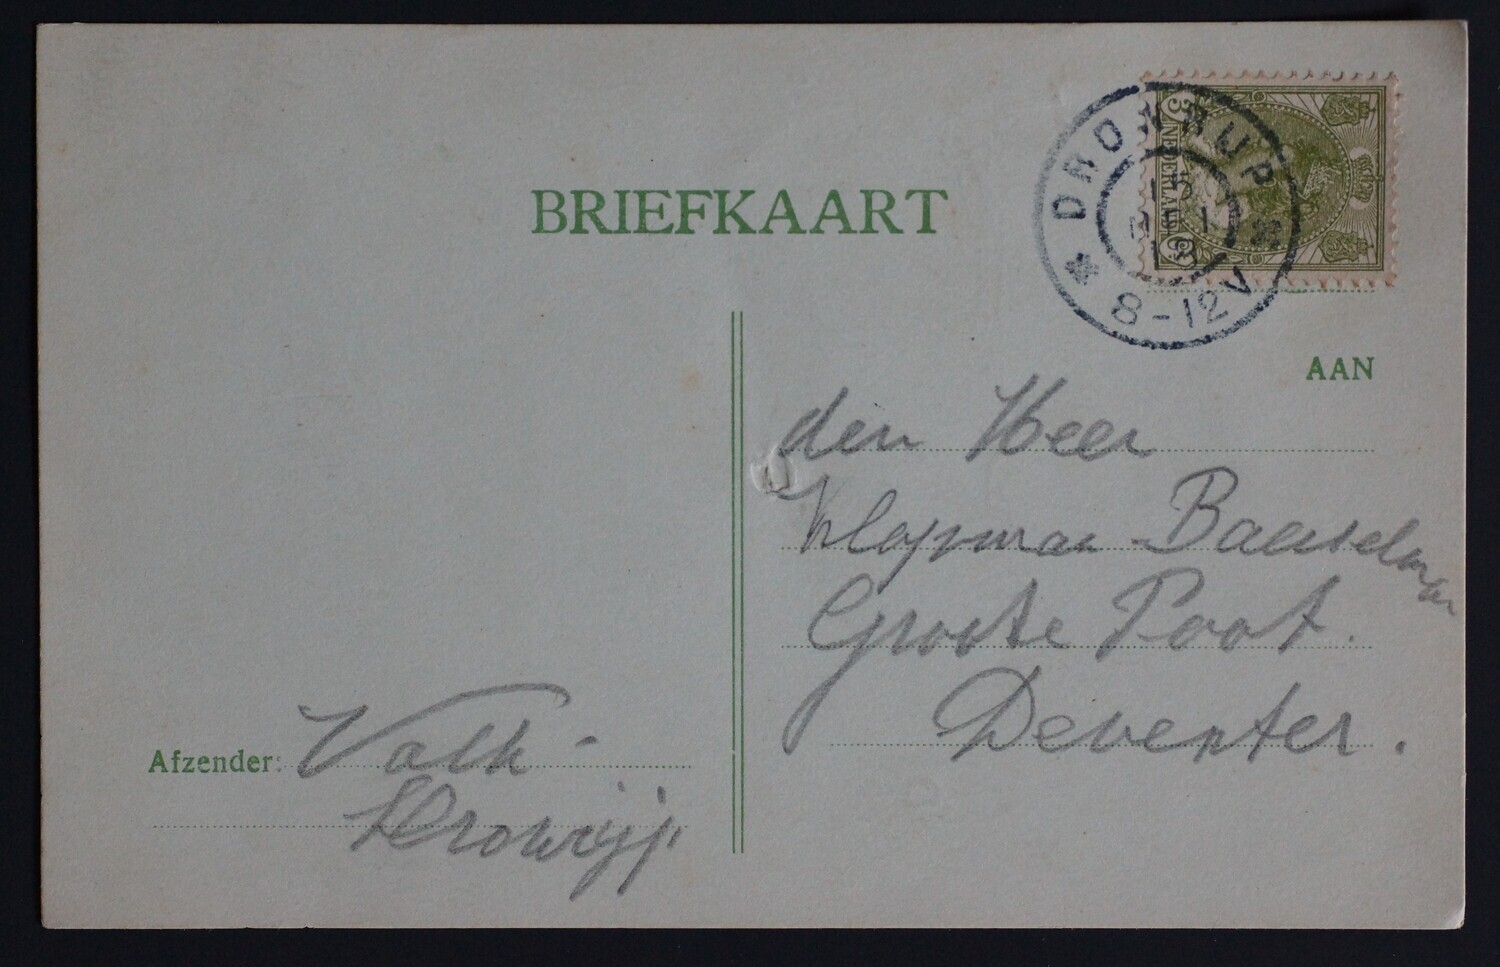 BRIEFKAART
DRONRIJP
8-12V
3 NEDERLAND Ct
AAN
den Heer
Klopman Baesselman
Groote Poot.
Deventer.
Afzender: Valk -
Dronrijp